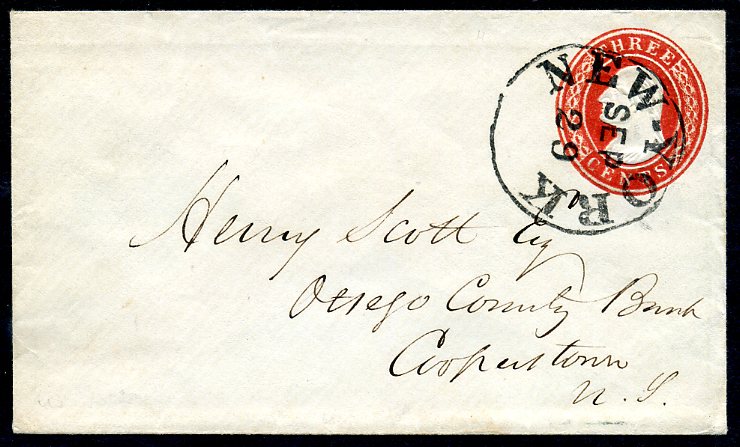 THREE
CENTS
NEW-YORK
SEP
29
Henry Scott Esq
Otsego County Bank
Cooperstown
N. Y.